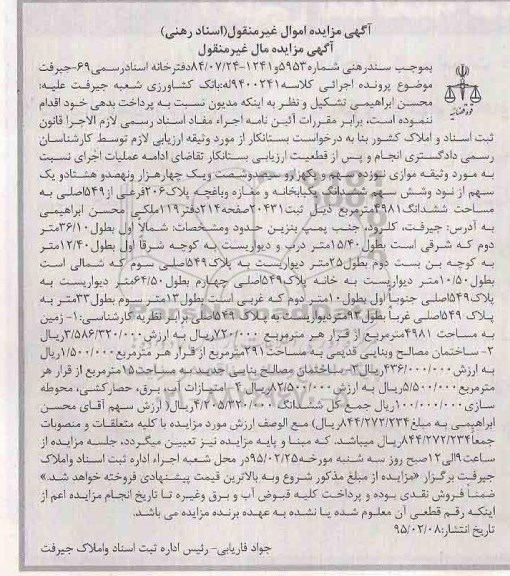 آگهی مزایده اموال غیرمنقول(اسناد رهنی)
آگهی مزایده مال غیرمنقول
بموجب سندرهنی شماره۵۹۵۳و۱۲۴۱-۸۴/۰۷/۲۴دفترخانه اسنادرسمی۶۹-جیرفت
موضوع پرونده اجرائی کلاسه۹۴۰۰۲۴۱له:بانک کشاورزی شعبه جیرفت علیه:
محسن ابراهیمی تشکیل و نظر به اینکه مدیون نسبت به پرداخت بدهی خود اقدام
ننموده است، برابر مقررات آئین نامه اجراء مفاد اسناد رسمی لازم الاجرا قانون
ثبت اسناد و املاک کشور بنا به درخواست بستانکار از مورد وثیقه ارزیابی لازم توسط کارشناسان
رسمی دادگستری انجام و پس از قطعیت ارزیابی بستانکار تقاضای ادامه عملیات اجرای نسبت
به مورد وثیقه موازی نوزده سهم و یکهزارو سیصدوشصت ویک چهارهزار ونهصدو هشتادو یک
سهم از نود وشش سهم ششدانگ یکبابخانه و مغازه وباغچه پلاک۲۰۶فرعی از۵۴۹اصلی به
مساحت ششدانگ۴۹۸۱مترمربع ذیل ثبت۲۰۴۳۱صفحه۲۱۴دفتر۱۱۹ملکی محسن ابراهیمی
به آدرس: جیرفت، کلرود، جنب پمپ بنزین حدود ومشخصات: شمالاً اول بطول۳۶/۱۰متر
دوم که شرقی است بطول۱۵/۴۰متر درب و دیواریست به کوچه شرقاً اول بطول۱۲/۴۰متر
به کوچه بن بست دوم بطول۲۵متر دیواریست به پلاک۵۴۹اصلی سوم که شمالی است
بطول۱۰/۵۰متر دیواریست به خانه پلاک۵۴۹اصلی چهارم بطول۶۴/۵۰متر دیواریست به
پلاک۵۴۹اصلی جنوباً اول بطول۱۰متر دوم که غربی است بطول۱۳متر سوم بطول۳۳متر به
پلاک ۵۴۹اصلی غرباً بطول۹۳متردیواریست به پلاک ۵۴۹اصلی برابرنظریه کارشناسی:۱- زمین
به مساحت ۴۹۸۱مترمربع از قرار هر مترمربع ۷۲۰/۰۰۰ریال به ارزش۳/۵۸۶/۳۲۰/۰۰۰ریال
۲- ساختمان مصالح وبنایی قدیمی به مساحت۲۹۱مترمربع از قرار هر مترمربع۱/۵۰۰/۰۰۰ریال
به ارزش۴۳۶/۰۰۰/۰۰۰ریال۳- ساختمان مصالح بنایی جدید به مساحت۱۵مترمربع از قرار هر
مترمربع۵/۵۰۰/۰۰۰ریال به ارزش۸۲/۵۰۰/۰۰۰ریال ۴- امتیازات آب، برق، حصارکشی، محوطه
سازی۱۰۰/۰۰۰/۰۰۰ریال جمع کل ششدانگ ۴/۲۰۵/۳۲۰/۰۰۰ریال( ارزش سهم آقای محسن
ابراهیمی به مبلغ۸۴۴/۲۷۲/۲۳۴ریال) مع الوصف ارزش مورد مزایده با کلیه متعلقات و منصوبات
جمعاً۸۴۴/۲۷۲/۲۳۴ریال میباشد. که مبنا و پایه مزایده نیز تعیین میگردد، جلسه مزایده از
ساعت۹الی۱۲صبح روز سه شنبه مورخه۹۵/۰۲/۲۵در محل شعبه اجراء اداره ثبت اسناد واملاک
جیرفت برگزار «مزایده از مبلغ مذکور شروع وبه بالاترین قیمت پیشنهادی فروخته خواهد شد.»
ضمناً فروش نقدی بوده و پرداخت کلیه قبوض آب و برق وغیره تا تاریخ انجام مزایده اعم از
اینکه رقم قطعی آن معلوم شده یا نشده به عهده برنده مزایده می باشد.
تاریخ انتشار:۹۵/۰۲/۰۸
جواد فاریابی- رئیس اداره ثبت اسناد واملاک جیرفت